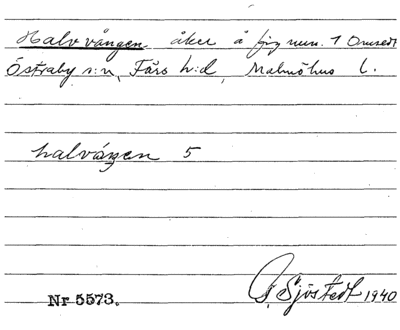 Halvvången, åker å fig num. 1 Onsedt
Östraby s:n, Färs h:d, Malmöhus l.
halvángen 5
G. Sjöstedt 1940
Nr 5573.